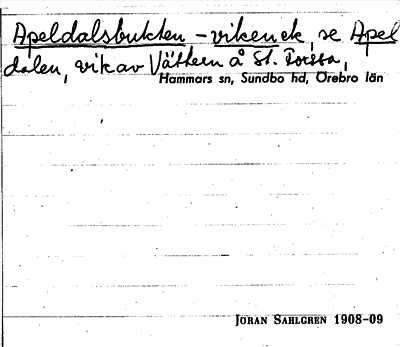 Apeldalsbukten – viken ek, se Apel
dalen, vik av Vättern å St. Forssa,
Hammars sn, Sundbo hd, Örebro län
JÖRAN SAHLGREN 1908-09